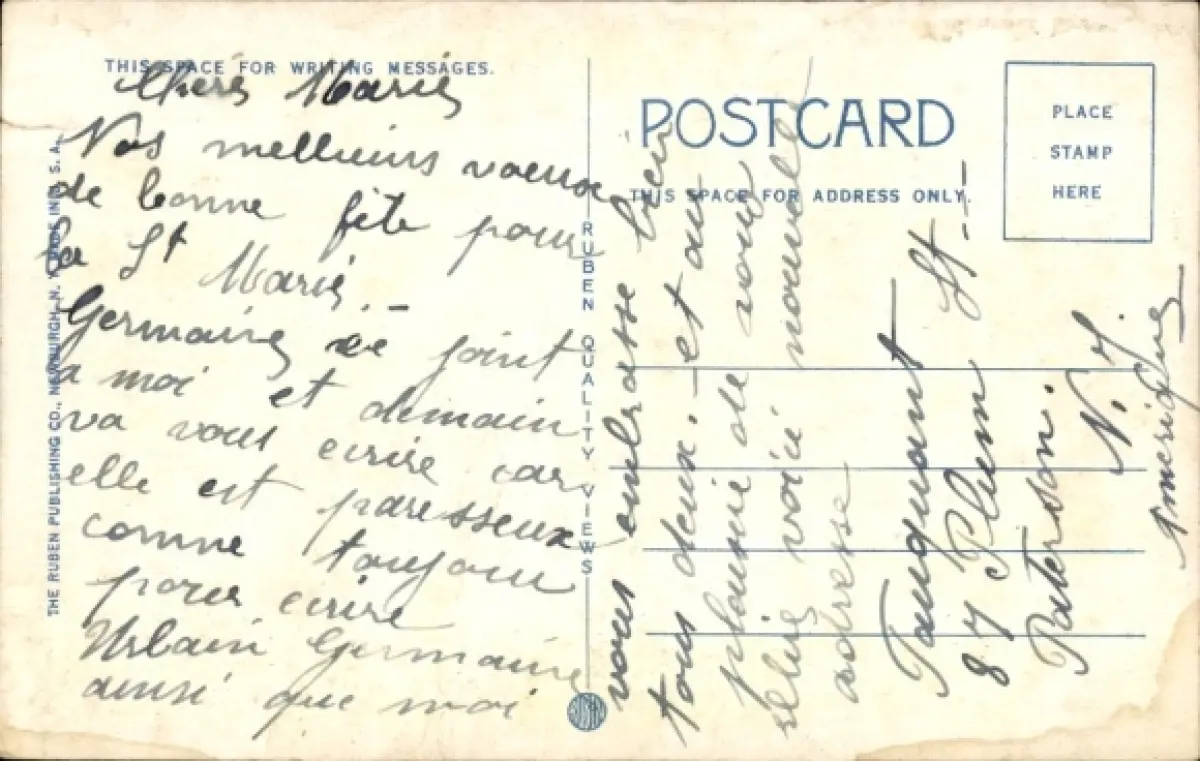 THIS SPACE FOR WRITING MESSAGES.
Chère Marie
Nos mellieurs voeux
de bonne fête pour
la St Marie. -
Germaine ce joint
a moi et demain
va vous ecrire car
elle est paresseux
comme toujour
pour ecrire
Urbain Germaine
ainsi que moi
vous embrasse bien
tous deux. - et au
plaisir de vous
adresse
POSTCARD
THIS SPACE FOR ADDRESS ONLY.
PLACE
STAMP
HERE
87 Plum St - - -
Paterson.
N. J.
Amerique
RUBEN QUALITY VIEWS
THE RUBEN PUBLISHING CO., NEWBURGH, N. Y. MADE IN U. S. A.